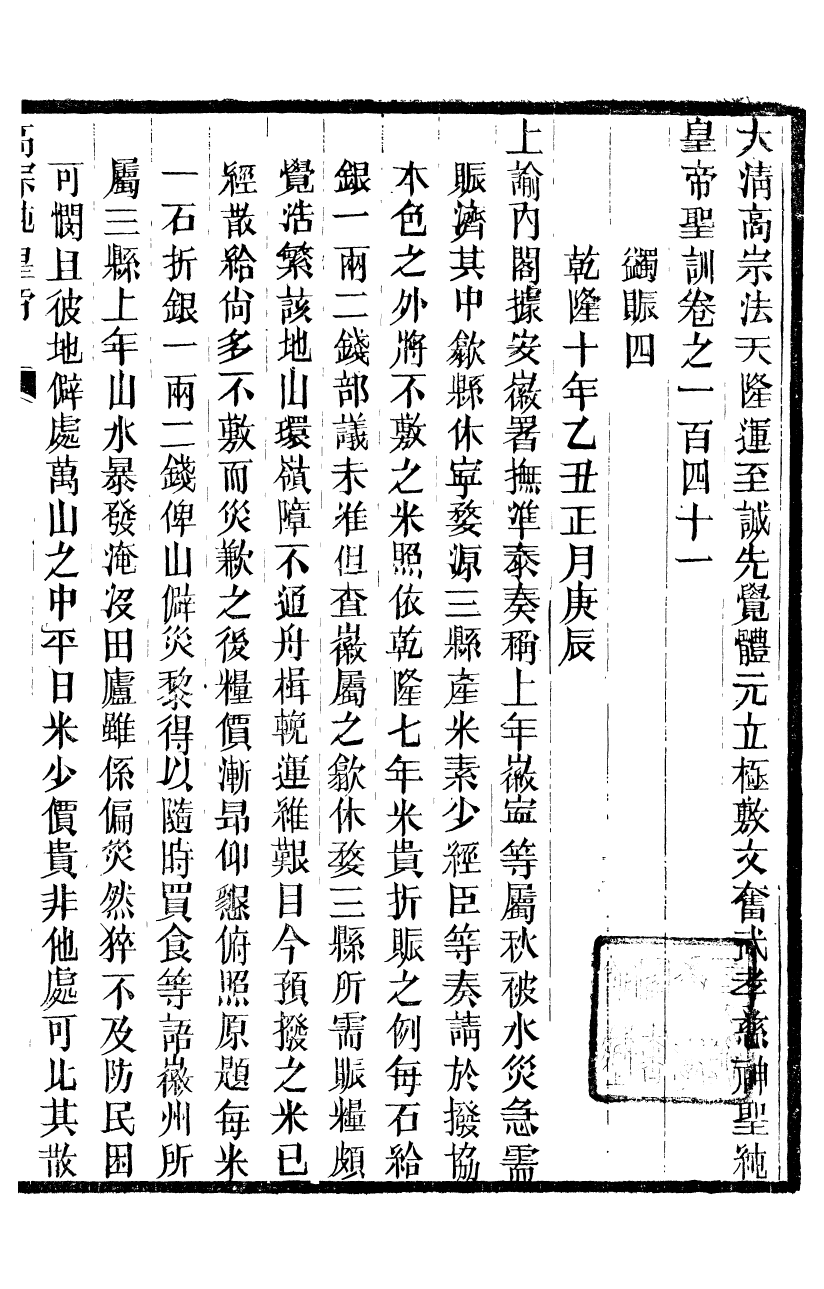 大清高宗法天隆運至誠先覺體元立極敷文奮武孝慈神聖純
皇帝聖訓卷之一百四十一
蠲賑四
乾隆十年乙丑正月庚辰
上諭內閣據安徽署撫準泰奏稱上年徽寧等屬秋被水災急需
賑濟其中歙縣休寧婺源三縣產米素少經臣等奏請於撥協
本色之外將不敷之米照依乾隆七年米貴折賑之例每石給
銀一兩二錢部議未准但查徽屬之歙休婺三縣所需賑糧頗
覺浩繁該地山環嶺障不通舟楫輓運維艱目今預撥之米已
經散給尙多不敷而災歉之後糧價漸昂仰懇俯照原題每米
一石折銀一兩二錢俾山僻災黎得以隨時買食等語徽州所
屬三縣上年山水暴發淹沒田廬雖係偏災然猝不及防民困
可憫且彼地僻處萬山之中平日米少價貴非他處可比其散